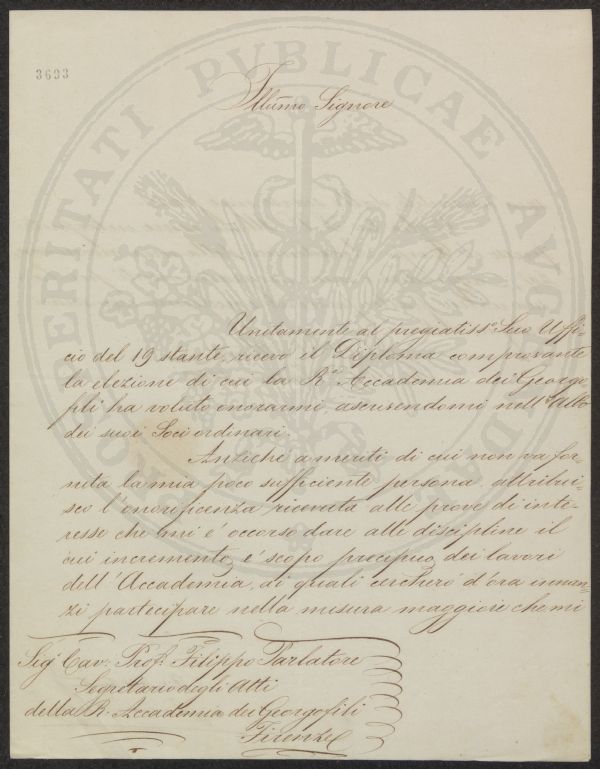 3693
Illũmo Signore
Unitamente al pregiatiss.º Suo Uffi-
cio del 19 stante, ricevo il Diploma comprovante
la elezione di cui la R.ª Accademia dei Georgo-
fili ha voluto onorarmi, ascrivendomi nell'Albo
dei suoi Soci ordinari.
Anzichè a meriti di cui non va for-
nita la mia poco sufficiente persona, attribui-
sco l'onorificenza ricevuta alle prove di inte-
resse che mi è occorso dare alle discipline il
cui incremento è scopo precipuo dei lavori
dell'Accademia, ai quali cercherò d'ora innan-
zi partecipare nella misura maggiore che mi
Sig.r Cav: Prof. Filippo Parlatore
Segretario degli Atti
della R. Accademia dei Georgofili
Firenze
PROSPERITATI PUBLICAE AUGENDAE